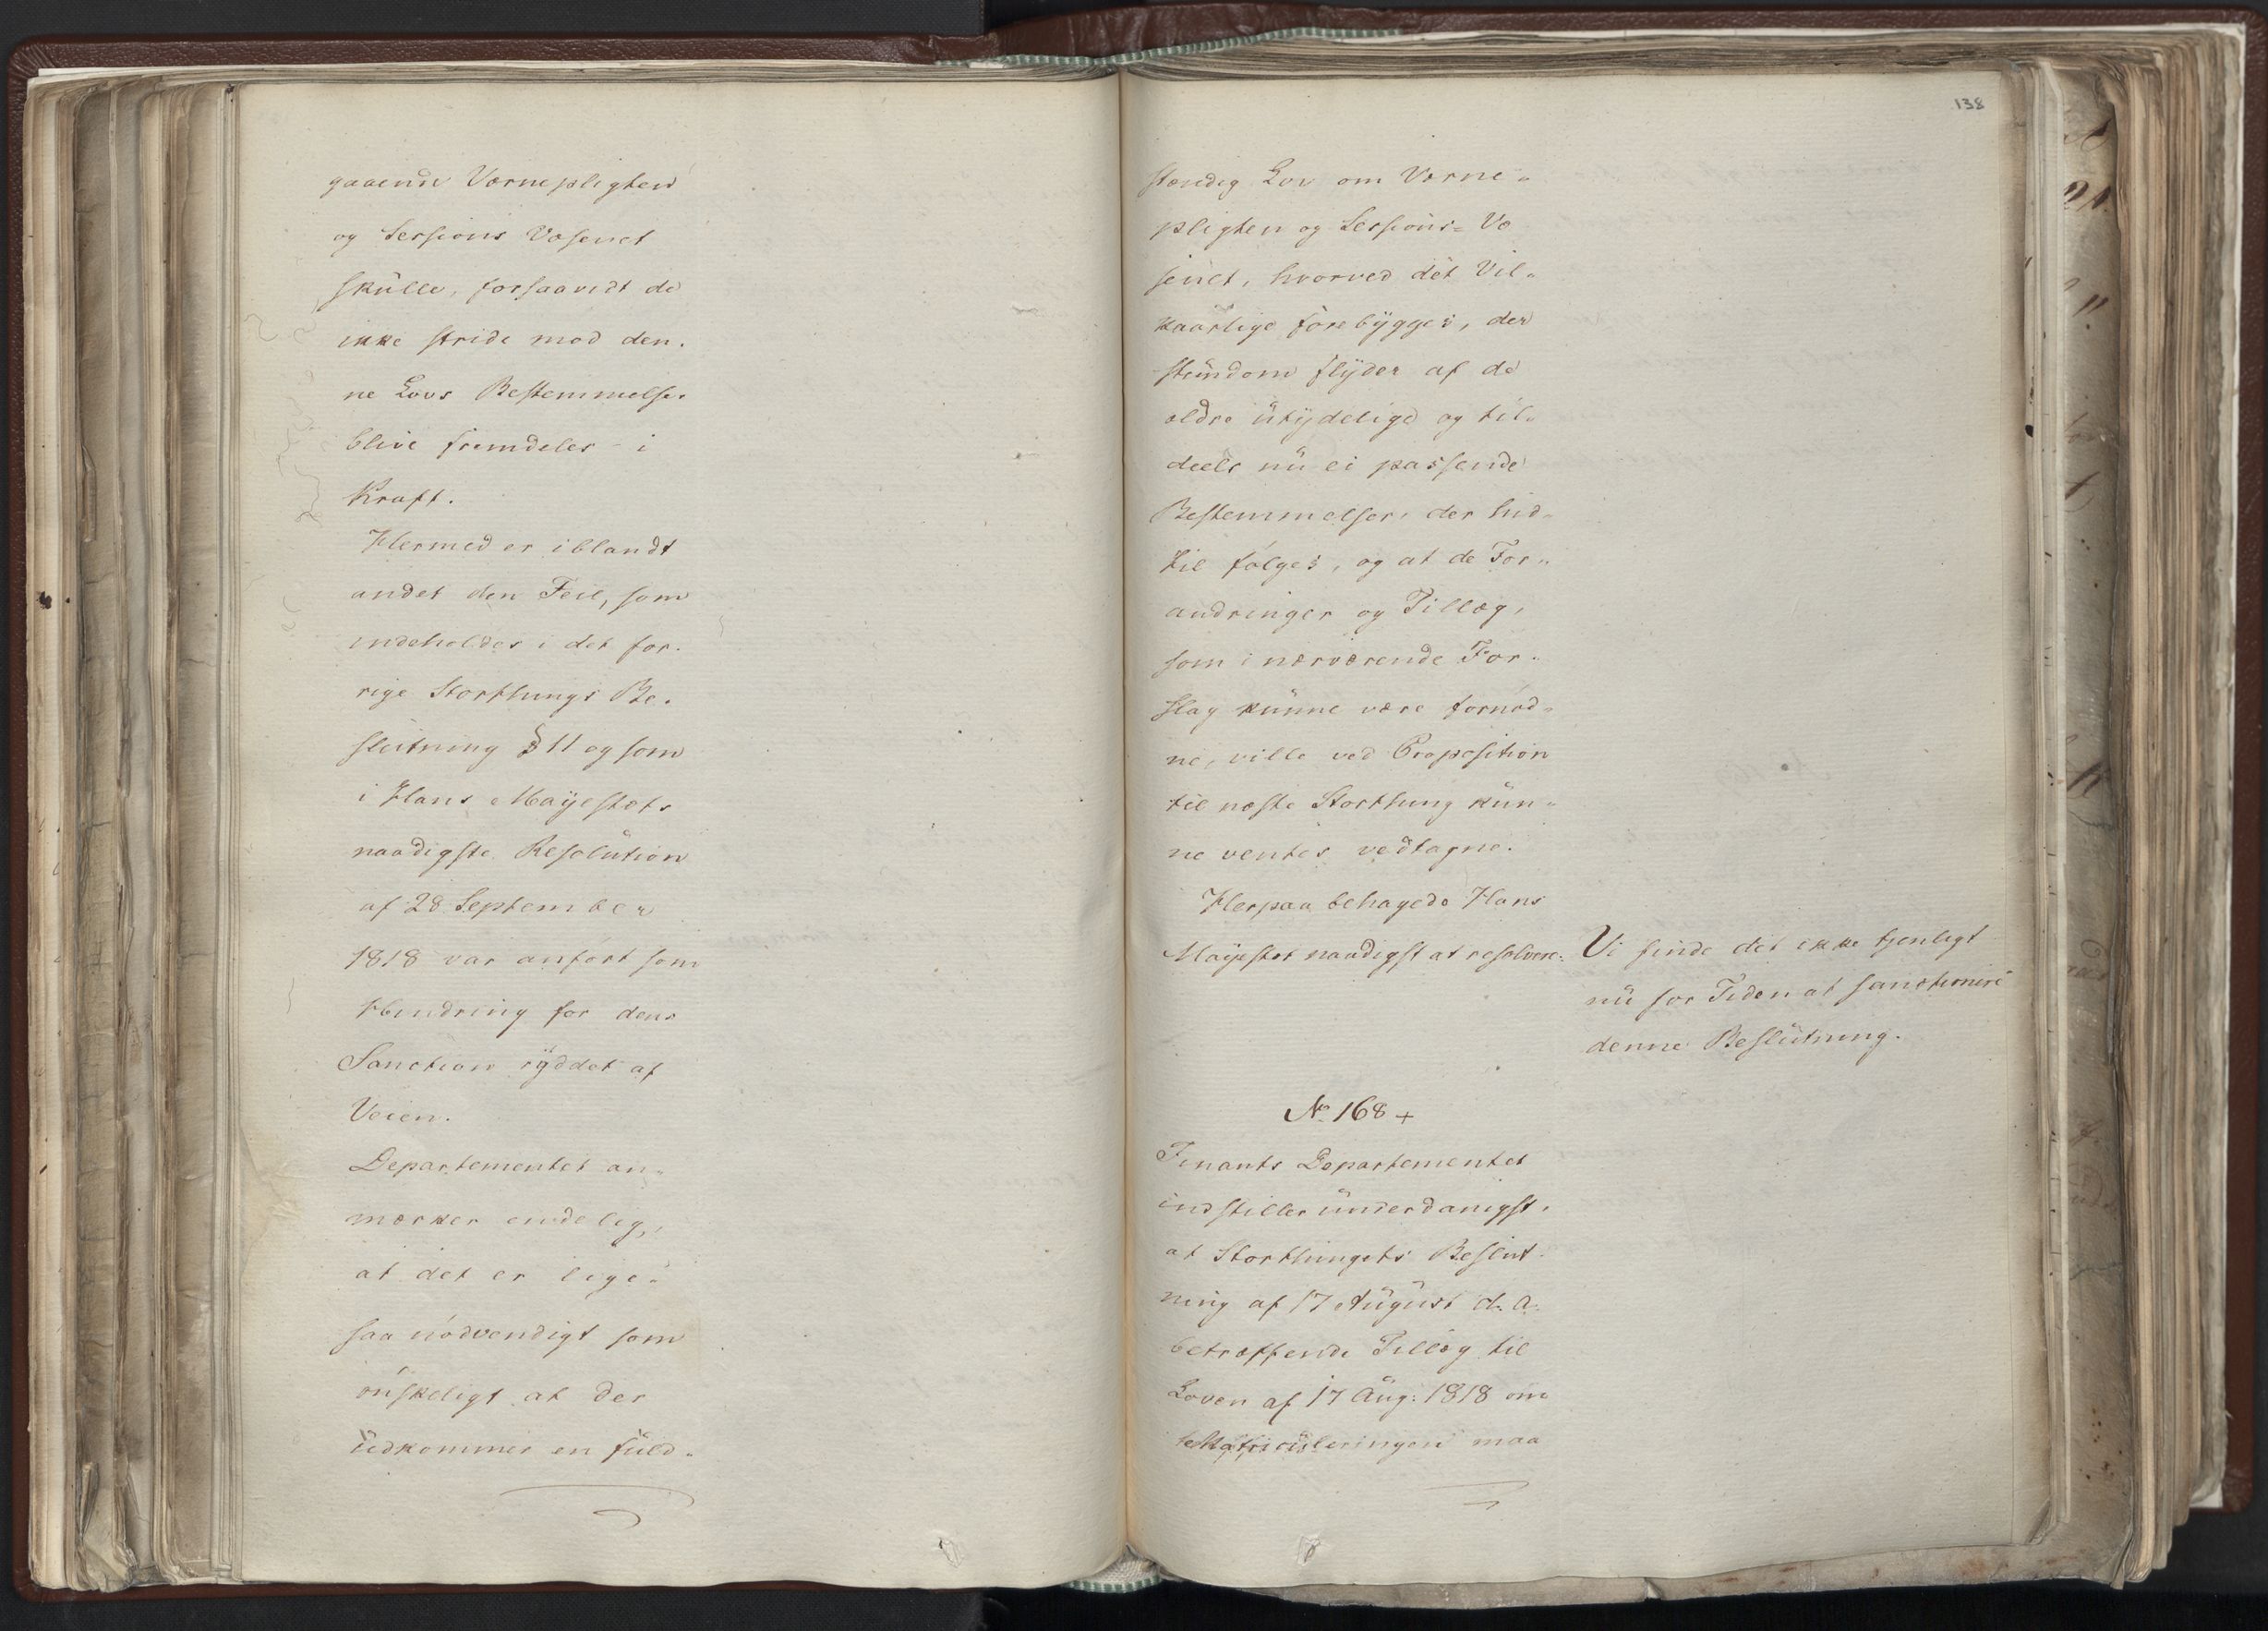 gaaende Værnepligten
og Sessions Væsenet
skulle, forsaavidt de
ikke stride mod den-
ne Lovs Bestemmelse-
blive fremdeles i
Kraft.
Hermed er iblandt
andet den Feil, som
indeholdes i det for-
rige Storthings Be-
slutning § 11 og som
i Hans Majestæts
naadigste Resolution
af 28 September
1818 var anført som
Hindring for dens
Sanction ryddet af
Veien.
Departementet an-
mærker endelig,
at det er lige-
saa nødvendigt som
ønskeligt at der
udkommer en fuld-
138
stændig Lov om Værne-
pligten og Sessions-Væ
senet, hvorved det Vil-
kaarlige forebygges, der
stundom flyder af de
ældre utydelige og til-
deels nu ei passende
Bestemmelser, der hid-
til følges, og at de For-
andringer og Tillæg,
som i nærværende For-
slag kunne være fornød-
ne, ville ved Proposition
til næste Storthing kun-
ne ventes vedtagne.
Herpaa behagede Hans
Majestet naadigst at resolvere:
Vi finde det ikke tjenligt
nu for Tiden at sanctionere
denne Beslutning.
No 168 +
Finants Departementet
indstiller underdanigst,
at Storthingets Beslut-
ning af 17 August d. A.
betræffende Tillæg til
Loven af 17 Aug: 1818 om
Matriculeringen maa